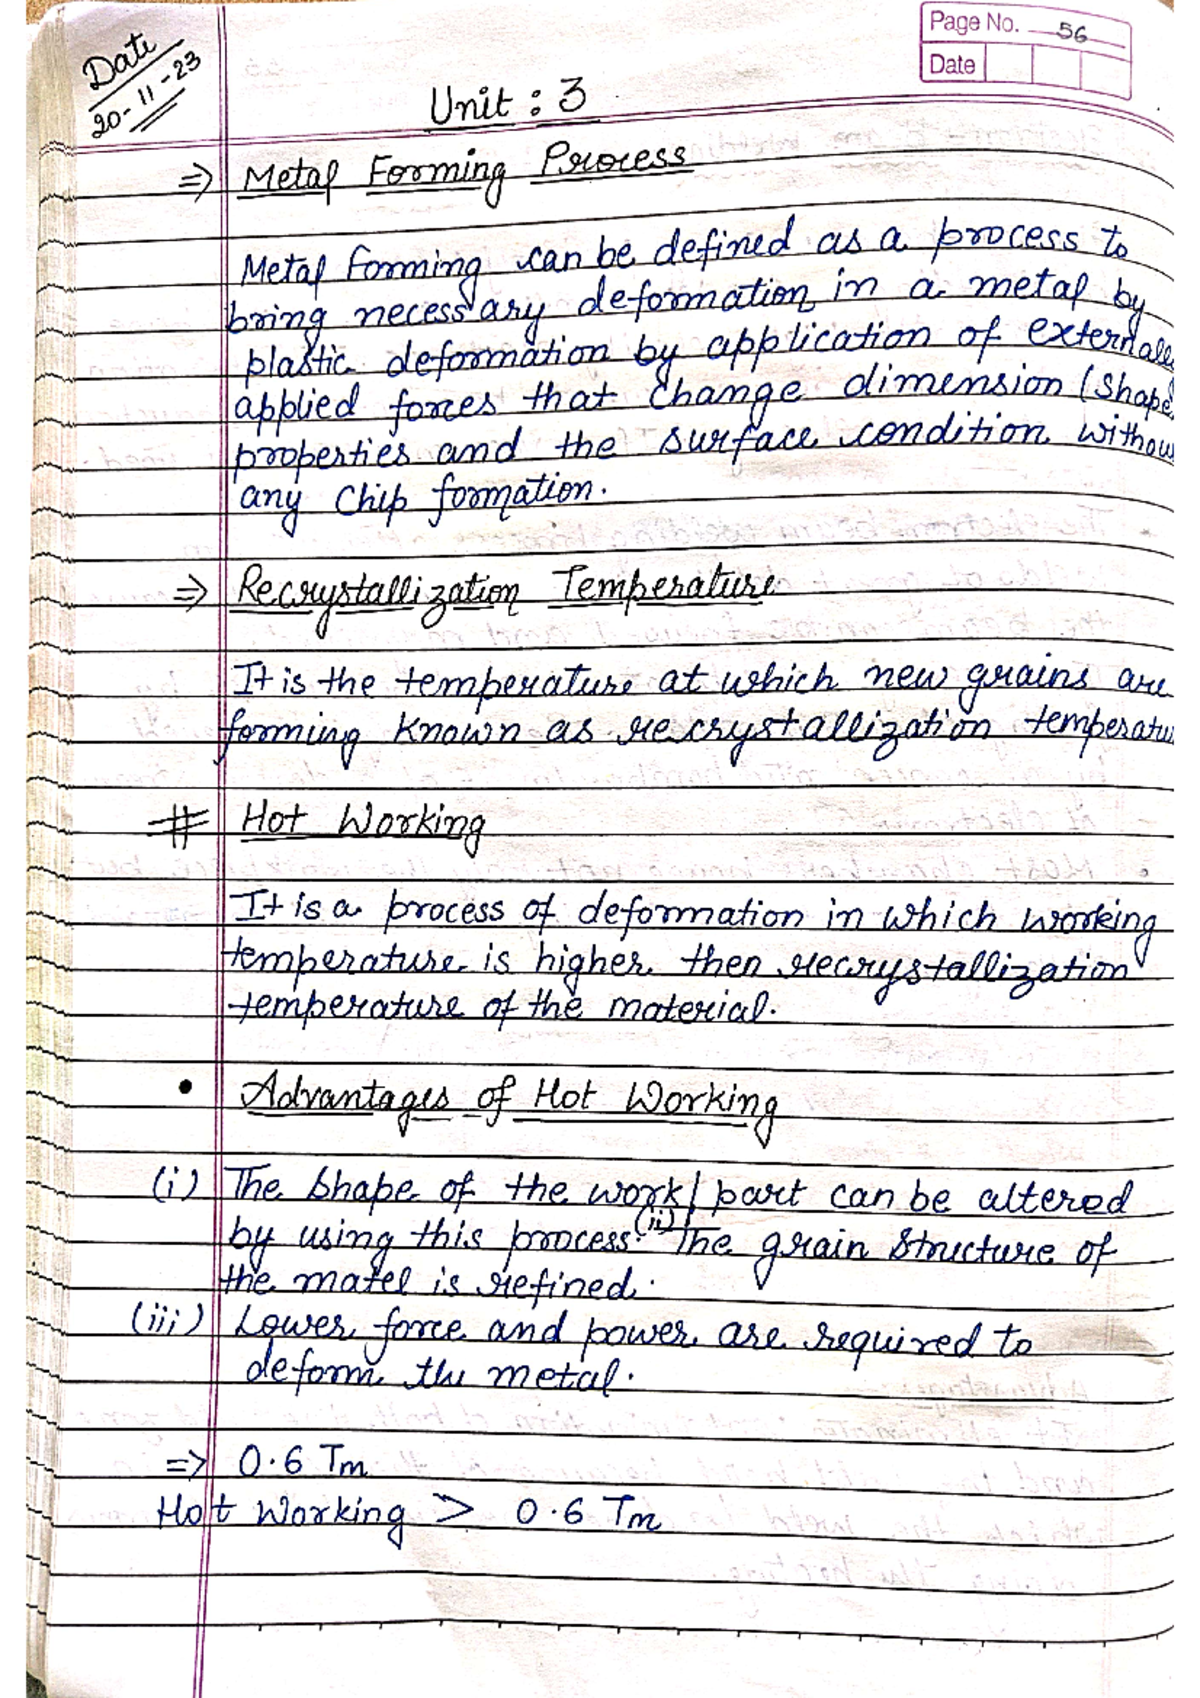 Date
20-11-23
Page No. 56
Date
Unit : 3
=> Metal Forming Process
Metal forming can be defined as a process to
bring necessary deformation in a metal by
plastic deformation by application of external
applied forces that change dimension (shape
properties and the surface condition withou
any chip formation.
=> Recrystallization Temperature
It is the temperature at which new grains are
forming known as recrystallization temperatu
# Hot Working
It is a process of deformation in which working
temperature is higher then recrystallization
temperature of the material.
• Advantages of Hot Working
(i) The shape of the work/part can be altered
by using this process. (ii) The grain structure of
the matel is refined.
(iii) Lower force and power are required to
deform the metal.
=> 0.6 Tm
Hot Working > 0.6 Tm